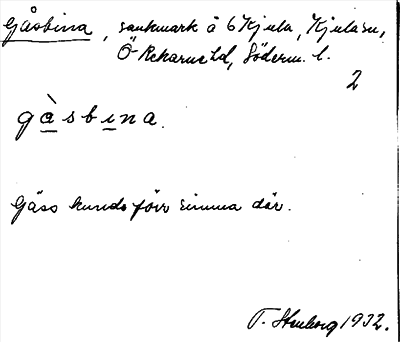 Gåsbina, sankmark å 6 Kjula, Kjula sn,
Ö-Rekarne hd, Söderm. l.
2
gàsbina.
Gäss kunde förr simma där.
T. Stenborg 1932.